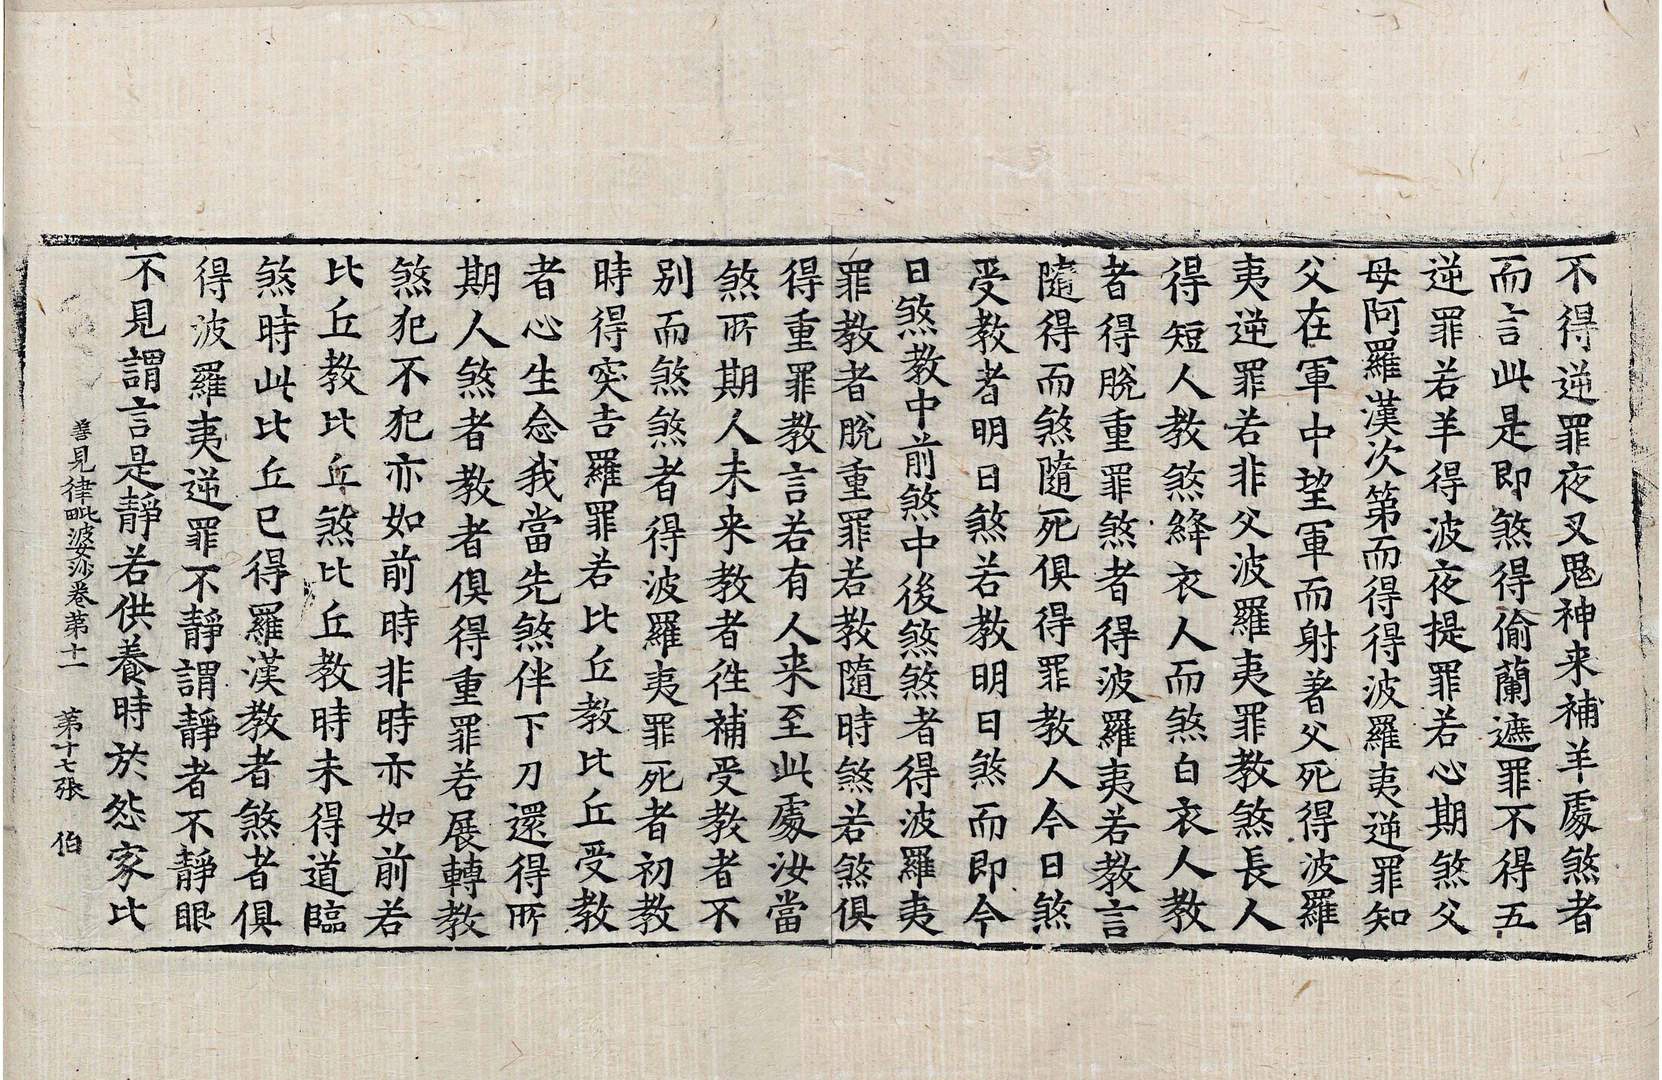 不得逆罪夜叉鬼神来補羊處煞者
而言此是即煞得偷蘭遮罪不得五
逆罪若羊得波夜提罪若心期煞父
母阿羅漢次第而得得波羅夷逆罪知
父在軍中望軍而射著父死得波羅
夷逆罪若非父波羅夷罪教煞長人
得短人教煞絳衣人而煞白衣人教
者得脫重罪煞者得波羅夷若教言
隨得而煞隨死俱得罪教人今日煞
受教者明日煞若教明日煞而即今
日煞教中前煞中後煞煞者得波羅夷
罪教者脫重罪若教隨時煞若煞俱
得重罪教言若有人来至此處汝當
煞所期人未来教者徃補受教者不
別而煞煞者得波羅夷罪死者初教
時得突吉羅罪若比丘教比丘受教
者心生念我當先煞伴下刀還得所
期人煞者教者俱得重罪若展轉教
煞犯不犯亦如前時非時亦如前若
比丘教比丘煞比丘教時未得道臨
煞時此比丘已得羅漢教者煞者俱
得波羅夷逆罪不靜謂靜者不靜眼
不見謂言是靜若供養時於怨家比
善見律毗婆沙卷第十一 第十七張 伯